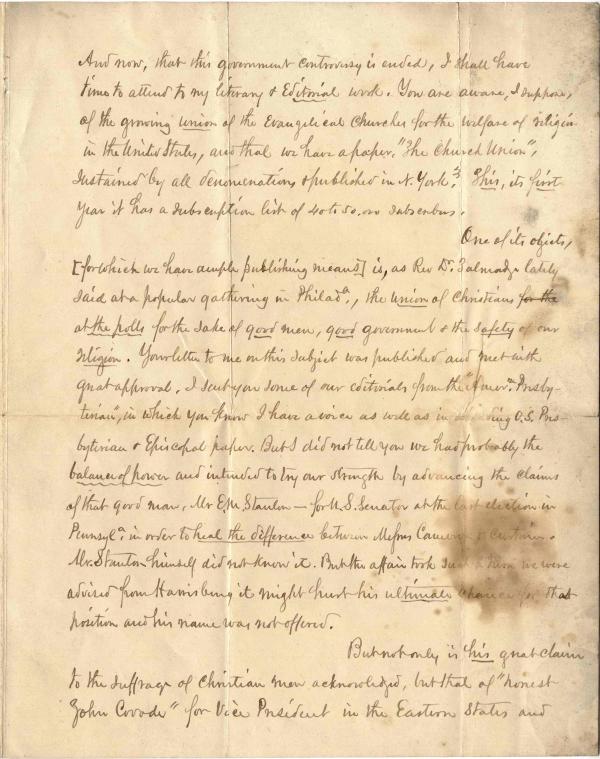 And now, that this government controversy is ended, I shall have
time to attend to my literary & Editorial work. You are aware, I suppose,
of the growing union of the Evangelical Churches for the welfare of religion
in the United States, and that we have a paper, "The Church Union",
sustained by all denominations & published in N. York. This, its first
year it has a subscription list of 40 to 50.000 subscribers.
One of its objects,
[for which we have ample publishing means] is, as Rev Dr. Talmadge lately
said at a popular gathering in Philada., the union of Christians for the
at the polls for the sake of good men, good government & the safety of our
religion. Your letter to me on this subject was published and met with
great approval. I sent you some of our editorials from the "Amern. Presby-
terian", in which you know I have a voice as well as in O.S. Pres-
byterian & Episcopal paper. But I did not tell you we had probably the
balance of power and intended to try our strength by advancing the claims
of that good man, Mr E.M. Stanton — for U.S. Senator at the last election in
Pennsyla. in order to heal the difference between Messrs Cameron & Curtin.
Mr. Stanton himself did not know it. But the affair took such a turn we were
advised from Harrisburg it might hurt his ultimate chance for that
position and his name was not offered.
But not only is his great claim
to the suffrage of Christian men acknowledged, but that of "honest
John Covode" for Vice President in the Eastern States and